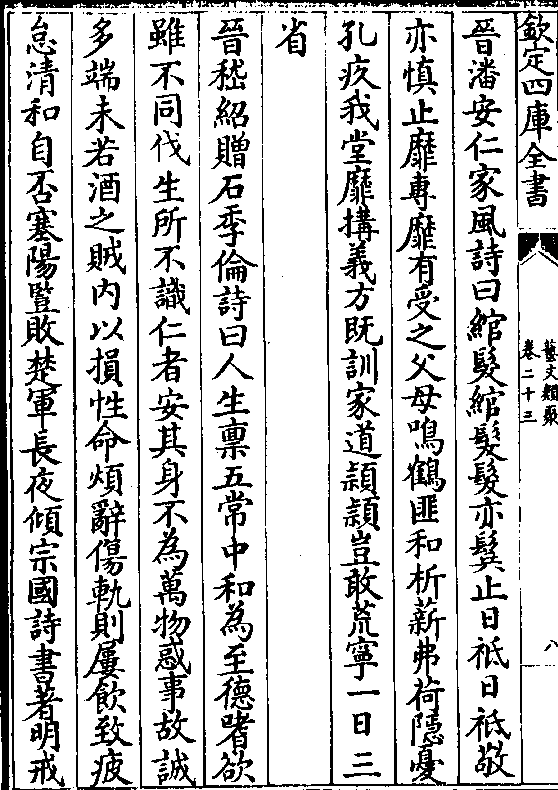 欽定四庫全書
藝文類聚
卷二十三
八
晉潘安仁家風詩曰綰髮綰髮髮亦鬒止日祗日祗敬
亦慎止靡專靡有受之父母鳴鶴匪和析薪弗荷隱憂
孔疚我堂靡搆義方既訓家道頴頴豈敢荒寧一日三
省
晉嵇紹贈石季倫詩曰人生禀五常中和為至德嗜欲
雖不同伐生所不識仁者安其身不為萬物惑事故誠
多端未若酒之賊内以損性命煩辭傷軌則屢飲致疲
怠清和自否塞陽豎敗楚軍長夜傾宗國詩書著明戒